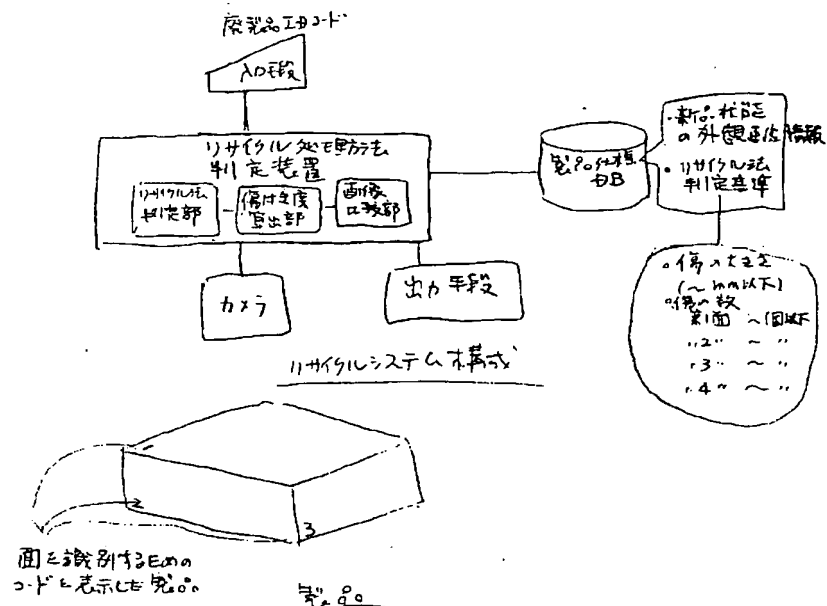 廃製品IDコード
入力手段
リサイクル処理方法
判定装置
リサイクル法
判定部
傷付き度
算出部
画像
比較部
製品仕様
DB
・新品状態
の外観画像情報
・リサイクル法
判定基準
カメラ
出力手段
・傷の大きさ
(〜mm以下)
・傷の数
第1面 〜個以下
〃2〃 〜 〃
〃3〃 〜 〃
〃4〃 〜 〃
リサイクルシステム構成
3
面を識別するための
コードを表示した製品
製品